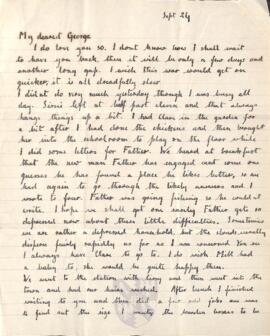 Sept 24
My dearest George
I do love you so. I dont know how I shall wait
to have you back, then it will be only a few days and
another long gap. I wish this war would get on
quicker, it is all dreadfully slow
I did not do very much yesterday though I was busy all
day. Simi left at half past eleven and that always
hangs things up a bit. I had Clare in the garden for
a bit after I had done the chickens and then brought
her into the schoolroom to play on the floor while
I did some letters for Father. We heard at breakfast
that the new man Father has engaged cant come one
guesses he has found a place he likes better, so we
had again to go through the likely answers and I
wrote to four. Father was going fishing so he couldnt
write. I hope we shall get one nicely Father gets so
depressed now about these little difficulties. Sometimes
we are rather a depressed household, but the clouds usually
disperse fairly rapidly as far as I am concerned. You see
I always have Clare to go to. I do wish Mill had
a baby to, she would be quite happy then.
We went to the station with Simi and then went into the
town and had our hair washed. After lunch I finished
writing to you and then did a few odd jobs one was
to find out the size the flower boxes to be